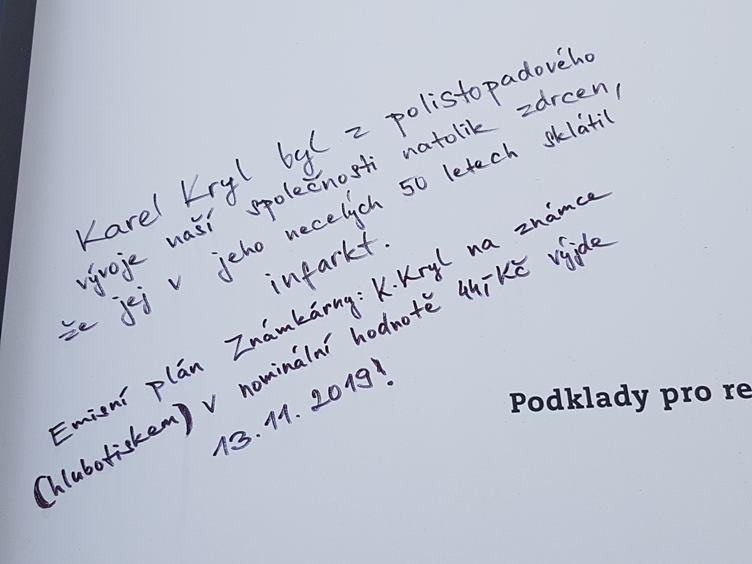 Karel Kryl byl z polistopadového
vývoje naší společnosti natolik zdrcen,
že jej v jeho necelých 50 letech sklátil
infarkt.
Emisní plán Známkárny: K. Kryl na známce
(hlubotiskem) v nominální hodnotě 44,- Kč vyjde
13.11. 2019!
Podklady pro re